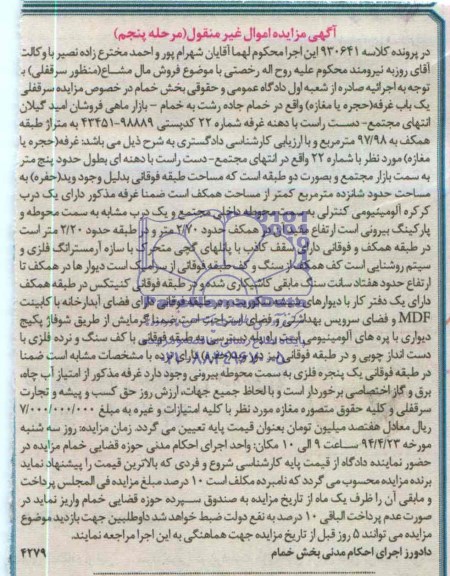 آگهی مزایده اموال غیر منقول(مرحله پنجم)
در پرونده کلاسه ۹۳۰۶۴۱ این اجرا محکوم لهما آقایان شهرام پور و احمد مخترع زاده نصیر با وکالت
آقای روزبه نیرومند محکوم علیه روح اله رخصتی با موضوع فروش مال مشاع(منظور سرقفلی) با
توجه به اجرائیه صادره از شعبه اول دادگاه عمومی و حقوقی بخش خمام در خصوص مزایده سرقفلی
یک باب غرفه(حجره یا مغازه) واقع در خمام جاده رشت به خمام – بازار ماهی فروشان امید گیلان
انتهای مجتمع- دست راست با دهنه غرفه شماره ۲۲ کدپستی ۹۸۸۸۹-۴۳۴۵۱ به متراژ طبقه
همکف به ۹۷/۹۸ مترمربع و با ارزیابی کارشناسی دادگستری به شرح ذیل می باشد: غرفه(حجره یا
مغازه) مورد نظر با شماره ۲۲ واقع در انتهای مجتمع- دست راست با دهنه ای بطول حدود پنج متر
به سمت بازار مجتمع و بصورت دو طبقه است که مساحت طبقه فوقانی بدلیل وجود وید(حفره) به
مساحت حدود شانزده مترمربع کمتر از مساحت همکف است ضمنا غرفه مذکور دارای یک درب
کرکره آلومینیومی کنترلی به محوطه داخلی مجتمع و یک درب مشابه به سمت محوطه و
پارکینگ بیرونی است ارتفاع همکف حدود ۲/۷۰ متر و در طبقه حدود ۲/۲۰ متر است
در طبقه همکف و فوقانی دارای سقف کاذب با پنلهای گچی متحرک با سازه آرمسترانگ فلزی و
سیتم روشنایی است کف همکف از سنگ و کف طبقه فوقانی از سرامیک است دیوار ها در همکف تا
ارتفاع حدود هفتاد سانت سنگ مابقی کاشیکاری شده و در طبقه فوقانی کنیتکس در طبقه همکف
دارای یک دفتر کار با دیوارهای شیشه سکوریت و در طبقه فوقانی دارای فضای آبدارخانه با کابینت
MDF و فضای سرویس بهداشتی و فضای استراحت است ضمنا گرمایش از طریق شوفاژ پکیج
دیواری با پره های آلومینیومی است راه پله دسترسی به طبقه فوقانی با کف سنگ و نرده فلزی با
دست انداز چوبی و در طبقه فوقانی نیز دور دارای نرده با مشخصات مشابه است ضمنا
در طبقه فوقانی یک پنجره فلزی به سمت محوطه بیرونی وجود دارد غرفه مذکور از امتیاز آب چاه،
برق و گاز اختصاصی برخوردار است و با لحاظ جمیع جهات، ارزش روز حق کسب و پیشه و تجارت
سرقفلی و کلیه حقوق متصوره مغازه مورد نظر با کلیه امتیازات و غیره به مبلغ ۷/۰۰۰/۰۰۰/۰۰۰
ریال معادل هفتصد میلیون تومان بعنوان قیمت پایه تعیین می گردد. زمان مزایده: روز سه شنبه
مورخه ۹۴/۴/۲۳ ساعت ۹ الی ۱۰ مکان: واحد اجرای احکام مدنی حوزه قضایی خمام مزایده در
حضور نماینده دادگاه از قیمت پایه کارشناسی شروع و فردی که بالاترین قیمت را پیشنهاد نماید
برنده مزایده محسوب می گردد که نامبرده مکلف است ۱۰ درصد مبلغ مزایده فی المجلس پرداخت
و مابقی آن را ظرف یک ماه از تاریخ مزایده به صندوق سپرده حوزه قضایی خمام واریز نماید در
صورت عدم پرداخت الباقی ۱۰ درصد به نفع دولت ضبط خواهد شد داوطلبین جهت بازدید موضوع
مزایده می توانند ۵ روز قبل از تاریخ مزایده جهت هماهنگی به این اجرا مراجعه نمایند.
دادورز اجرای احکام مدنی بخش خمام ۴۲۷۹